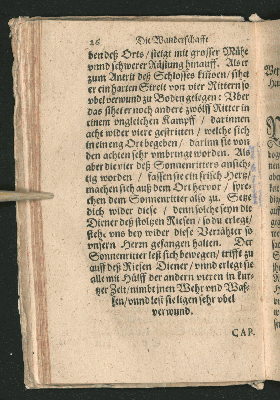 26 Die Wanderschafft
den deß Orts / steigt mit grosser Mühe
vnnd schwerer Rüstung hinauff. Als er
zum Antrit deß Schlosses kommen / sihet
er ein harten Streit von vier Rittern so
vbel verwund zu Boden gelegen: Vber
das sihet er noch andere zwölff Ritter in
einem vngleichen Kampff / darinnen
acht wider viere gestritten / welche sich
in ein eng Ort begeben / darinn sie von
den achten sehr vmbringt werden. Als
aber die vier deß Sonnenritters ansich-
tig worden / fassen sie ein frisch Hertz /
machen sich auß dem Ort hervor / spre-
chen dem Sonnenritter also zu. Setze
dich wider diese / denn solche seyn die
Diener deß stoltzen Riesen / so du erlegt /
stehe vns bey wider diese Verräther so
vnsern Herrn gefangen halten. Der
Sonnenritter lest sich bewegen / trifft zu
auff deß Riesen Diener / vnnd erlegt sie
alle mit Hülff der andern vieren in kur-
tzer Zeit / nimbt jnen Wehr vnd Waf-
fen / vnnd lest sie ligen sehr vbel
verwund.
CAP.